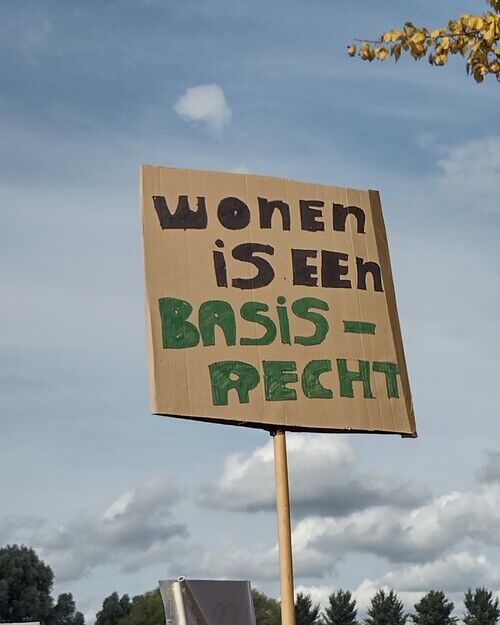 WONEN
iS EEN
BASiS -
RECHT